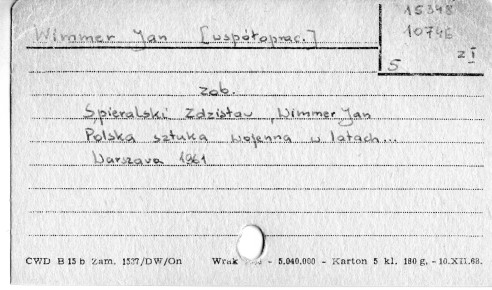 15348
Wimmer Jan [współoprac.]
10746
5 z I
zob.
Spieralski Zdzisław, Wimmer Jan
Polska sztuka wojenna w latach...
Warszawa 1961
CWD B 15 b Zam. 1537/DW/On Wrak - 5.040.000 - Karton 5 kl. 180 g. - 10.XII.68.